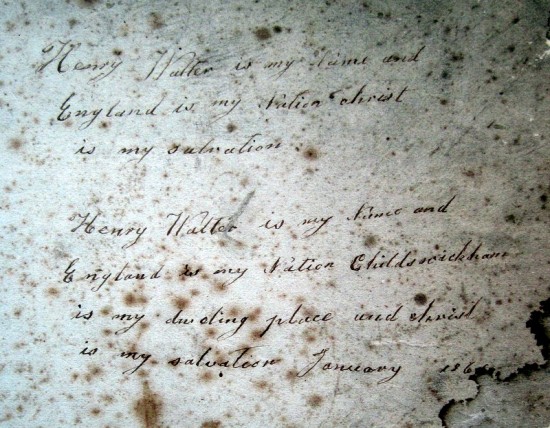 Henry Walter is my name and
England is my Nation christ
is my salvation.
Henry Walter is my Name and
England is my Nation Childswickham
is my dwoling place and christ
is my salvation January 186